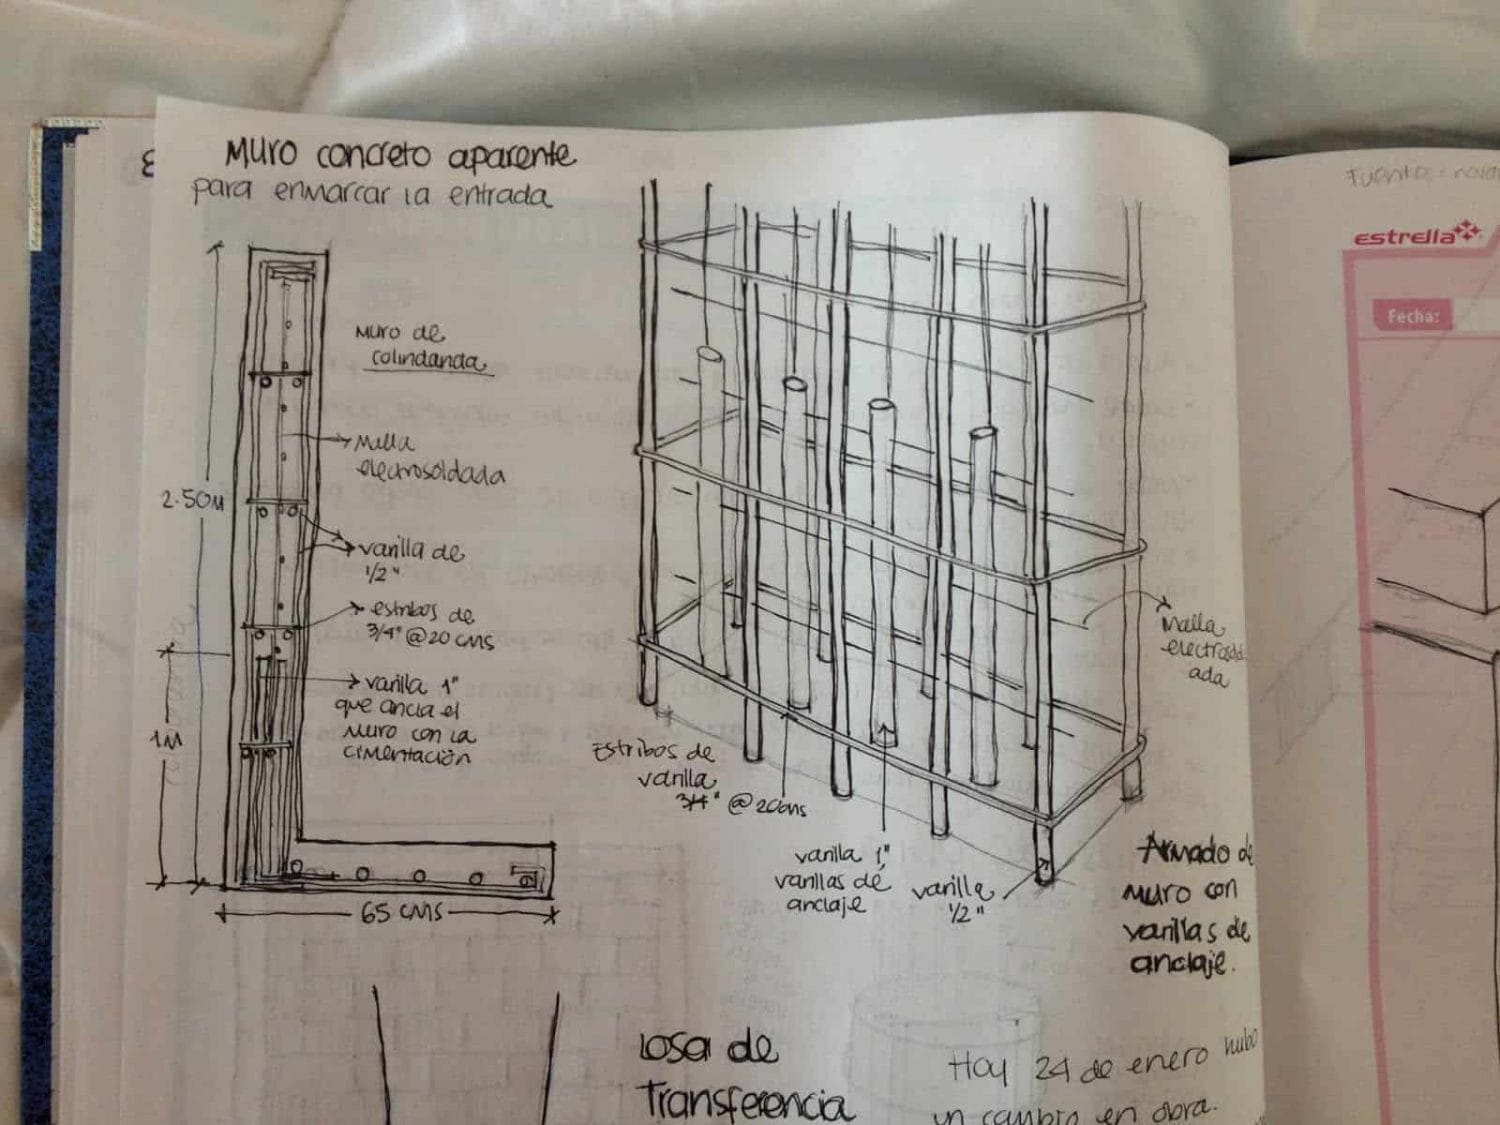 MURO CONCRETO APARENTE
para enmarcar la entrada
Muro de
colindanda
Malla
electrosoldada
2.50M
varilla de
1/2"
estribos de
3/4" @ 20 cms
varilla 1"
que ancla el
muro con la
cimentación
1M
65 CMS
Malla
electrosold
ada
Estribos de
varilla
3/4" @ 20cms
varilla 1"
varillas de
anclaje
varilla
1/2"
Armado de
muro con
varillas de
anclaje.
Losa de
Transferencia
Hoy 24 de enero hubo
un cambio en obra.
Fuentes:
estrella
Fecha: